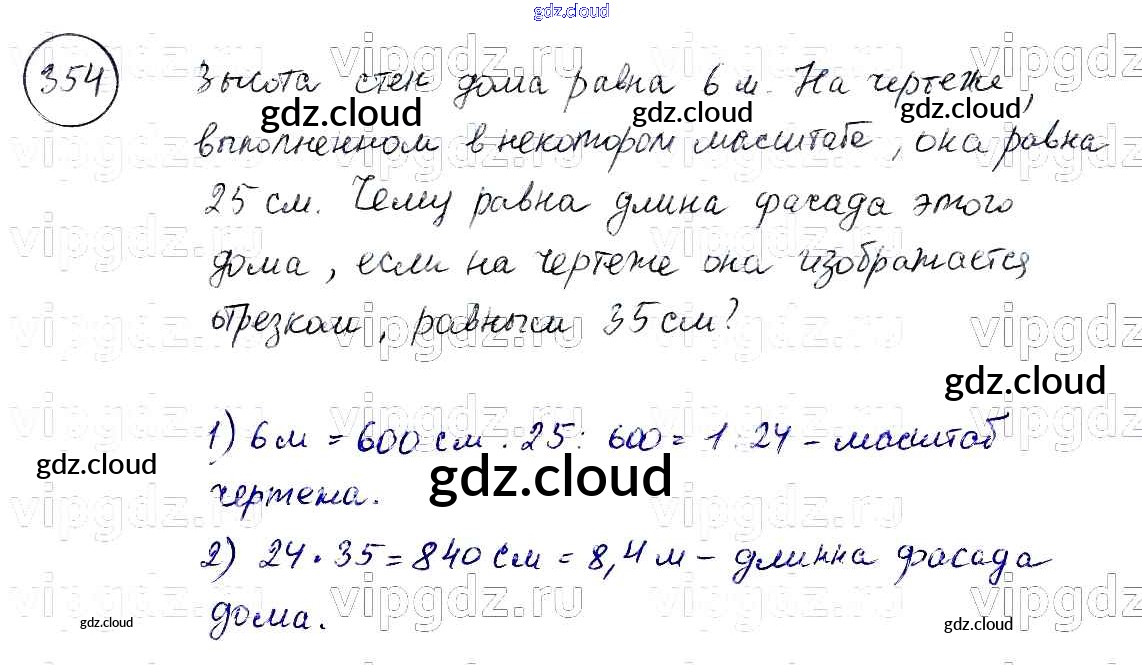 gdz.cloud
354 Высота стен дома равна 6 м. На чертеже,
выполненном в некотором масштабе, она равна
25 см. Чему равна длина фасада этого
дома, если на чертеже она изображается
отрезком, равным 35 см?
gdz.cloud
1) 6 м = 600 см. 25 : 600 = 1 : 24 – масштаб
чертежа.
gdz.cloud
2) 24 · 35 = 840 см = 8,4 м – длинна фасада
дома.
gdz.cloud
vipgdz.ru